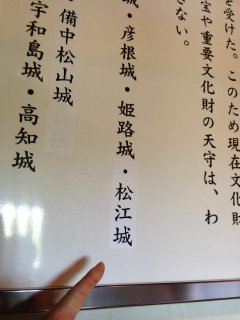 を受けた。このため現在文化財
宝や重要文化財の天守は、わ
さない。
城・彦根城・姫路城・松江城
・備中松山城
宇和島城・高知城